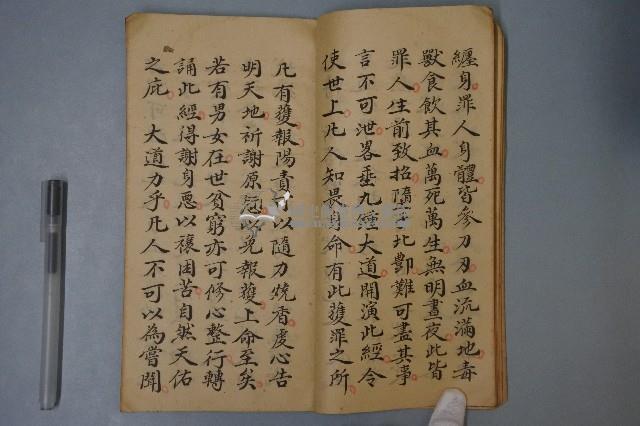 纏身罪人身體皆參刀刃血流滿地毒
獸食飲其血萬死萬生無明晝夜此皆
罪人生前致招隋此酆難可盡其事
言不可泄畧垂九種大道開演此經令
使世上凡人知畏身命有此獲罪之所
凡有獲報陽責可以隨力燒香虔心告
明天地祈謝原冤以免報獲上命至矣
若有男女在世貧窮亦可修心整行轉
誦此經得謝身惡以禳困苦自然天佑
之庇 大道力乎凡人不可以為嘗聞